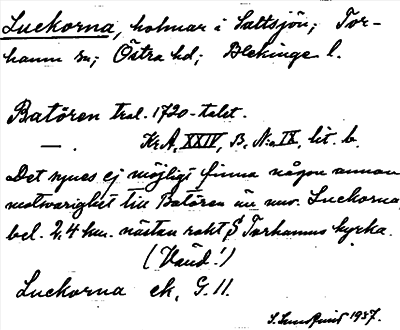 Luckorna, holmar i Saltsjön; Tor-
hamn sn; Östra hd; Blekinge l.
Batören trol. 1720-talet.
— . Kr.A, XXIV, B, N:o IX, lit. b.
Det synes ej möjligt finna någon annan
motsvarighet till Batören än nuv. Luckorna,
bel. 2,4 km. nästan rakt S Torhamns kyrka.
(Vänd!)
Luckorna ek, G. 11.
S. Lundqvist 1937.